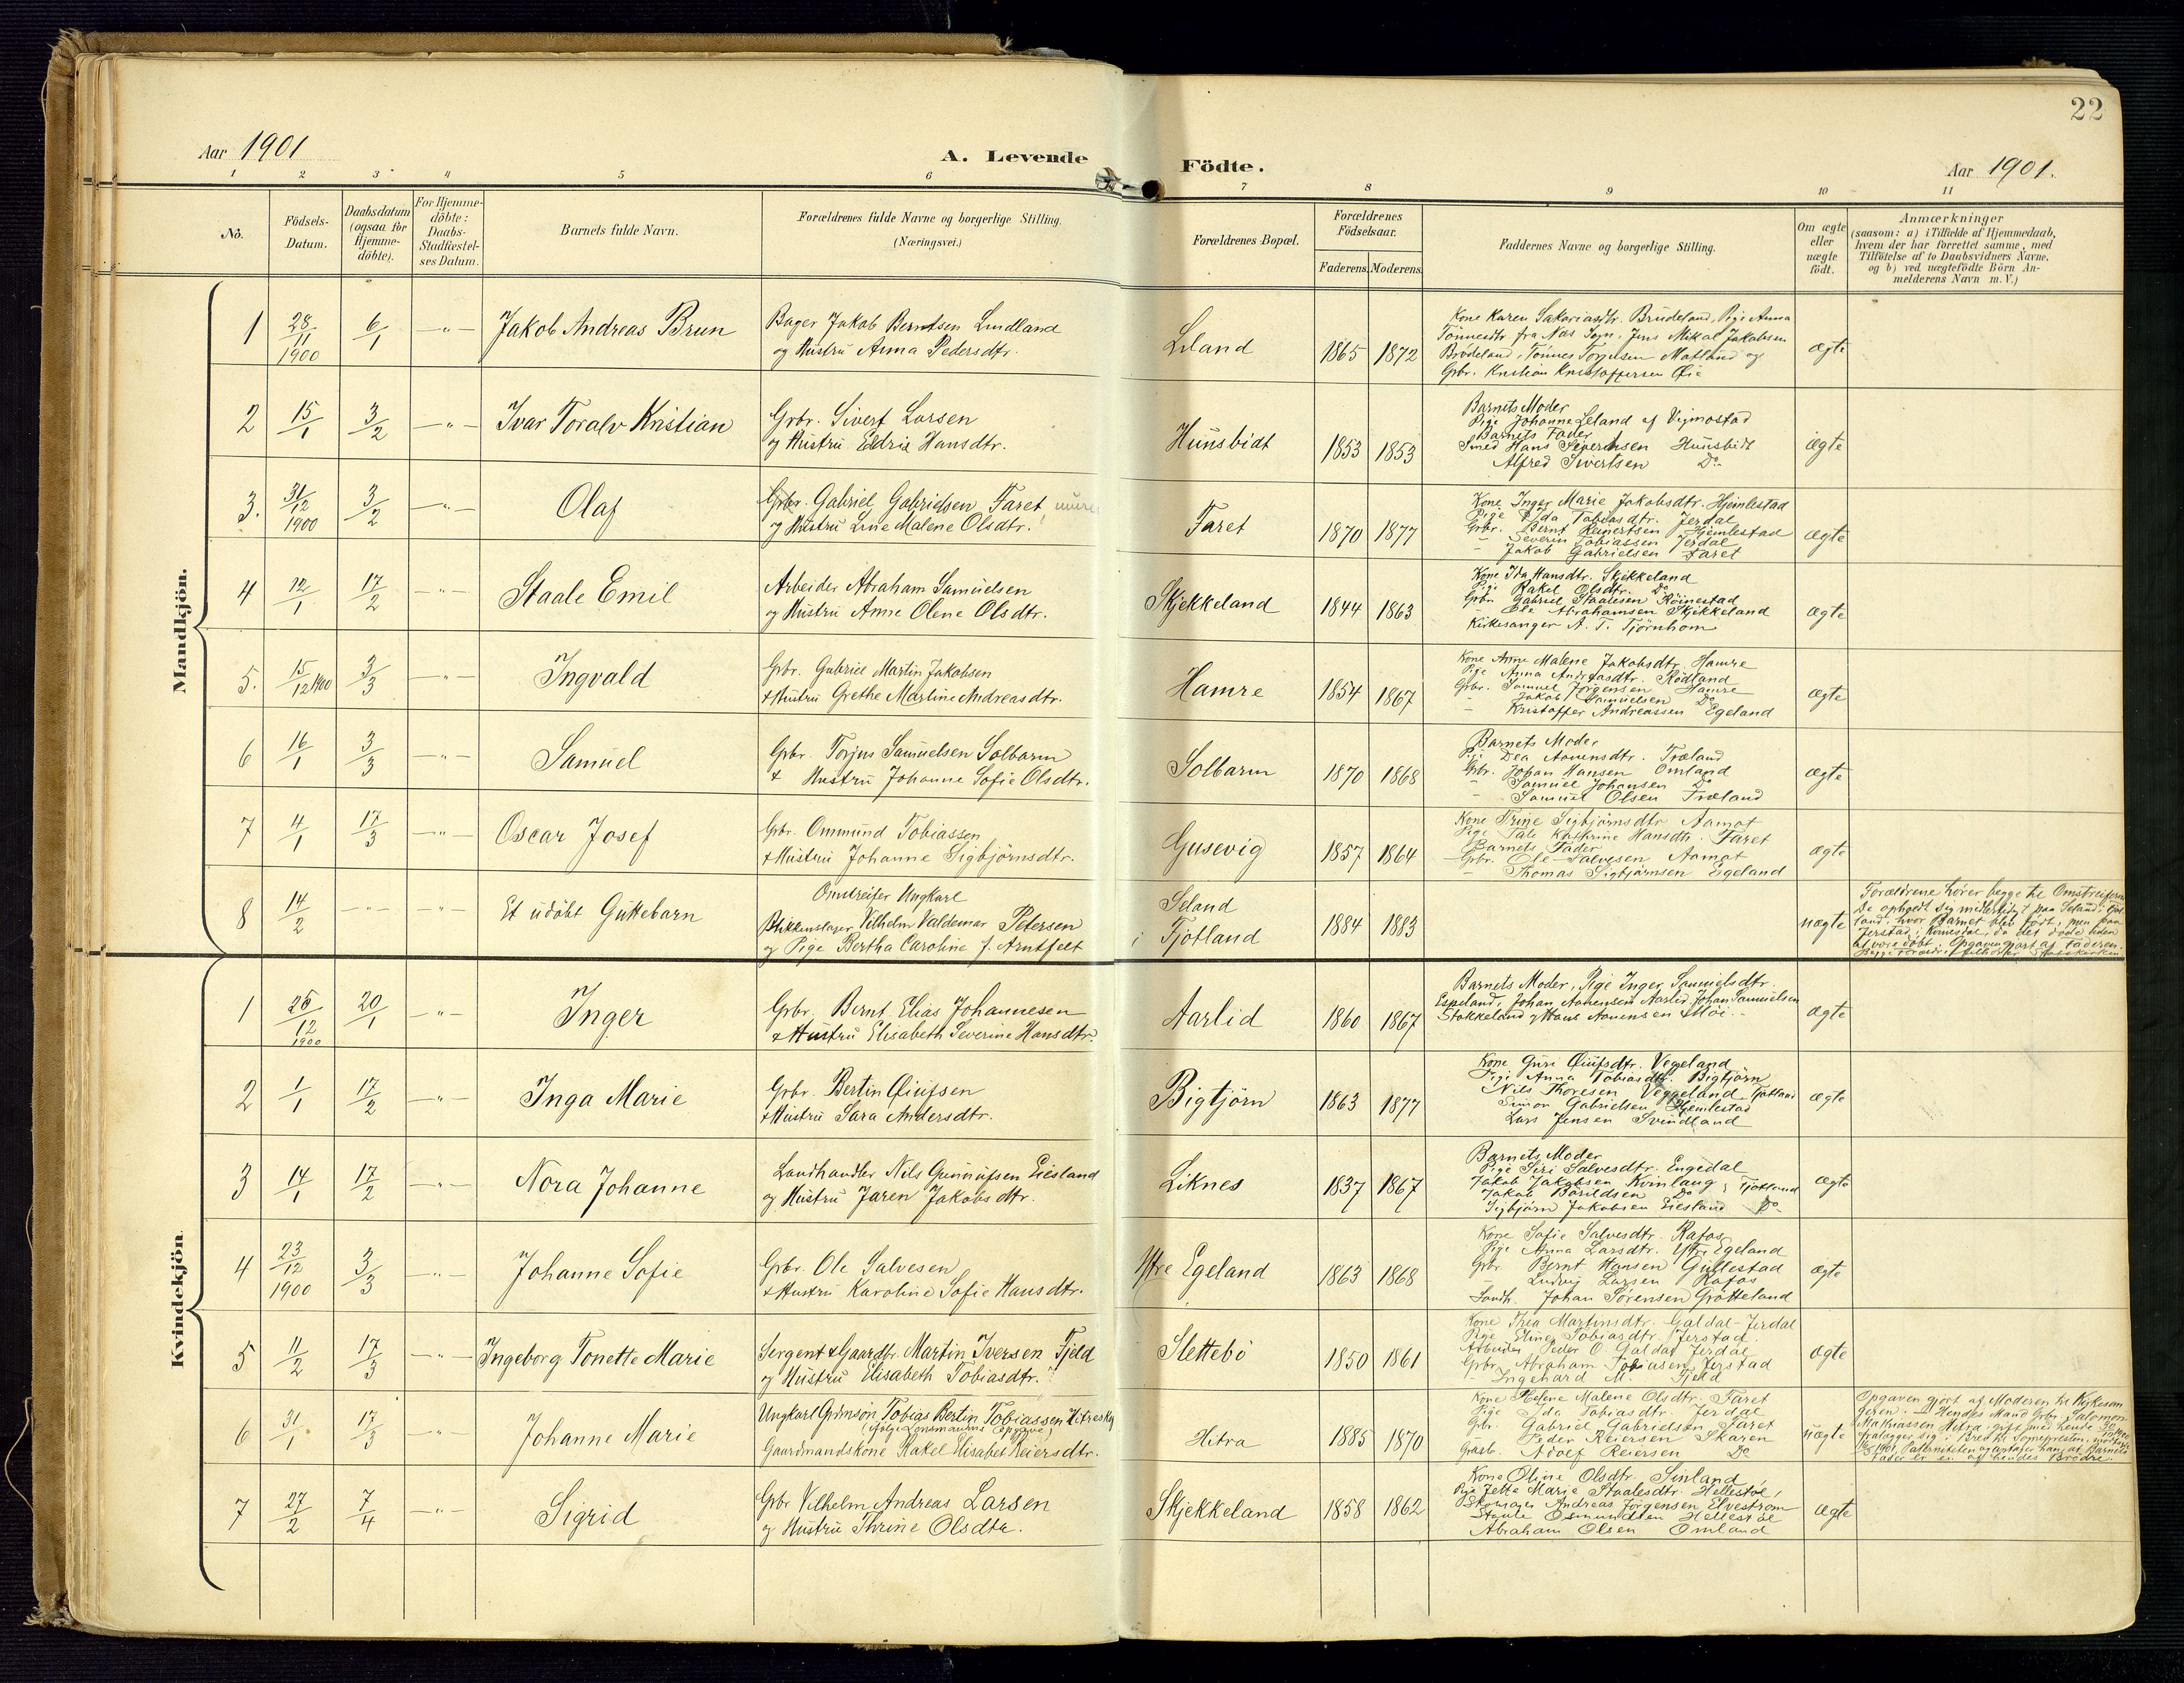 22
Aar 1901
A. Levende Födte.
Aar 1901.
1 2 3 4 5 6 7 8 9 10 11
No.
Födsels-Datum.
Daabsdatum (ogsaa for Hjemme-döbte).
For Hjemme-döbte: Daabs-Stadfestel-ses Datum.
Barnets fulde Navn.
Forældrenes fulde Navne og borgerlige Stilling. (Næringsvei.)
Forældrenes Bopæl.
Forældrenes Födselsaar.
Faderens. Moderens.
Faddernes Navne og borgerlige Stilling.
Om ægte eller uægte födt.
Anmærkninger
(saasom: a) i Tilfælde af Hjemmedaab,
hvem der har forrettet samme, med
Tilföielse af to Daabsvidners Navne,
og b) ved uægtefödte Börn An-
melderens Navn m.V.)
Mandkjön.
1 28/11 1900 6/1 —"— Jakob Andreas Brun
Bager Jakob Berntsen Lindland
og Hustru Anna Pedersdtr.
Leland 1865 1872
Kone Karen Sakariasdtr. Brüdeland, Pige Anna
Tönnesdtr fra Næs Sogn, Jens Mikal Jakobsen
Brödeland, Tönnes Torjusen Matland og
Gbr. Kristian Kristoffersen Öie
ægte
2 15/1 3/2 —"— Ivar Toralv Kristian
Grbr. Sivert Larsen
og Hustru Eldrie Hansdtr.
Hunsbidt 1853 1853
Barnets Moder
Pige Johanne Leland af Vigmostad
Barnets Fader
Smed Hans Severinsen Hunsbidt
Alfred Sivertsen Do
ægte
3. 31/12 1900 3/2 —"— Olaf
Grbr. Gabriel Gabrielsen Faret
og Hustru Lene Malene Olsdtr.
Faret 1870 1877
Kone Inger Marie Jakobsdtr. Hjemlestad
Pige Ida Tobiasdtr. Jerdal
Grbr. Bernt Reinertsen Hjemlestad
- Severin Tobiassen Jerdal
- Jakob Gabrielsen Faret
ægte
4 12/1 17/2 —"— Staale Emil
Arbeider Abraham Samuelsen
og Hustru Anne Olene Olsdtr.
Skjekkeland 1844 1863
Kone Ida Hansdtr. Skjekkeland
Pige Rakel Olsdtr. Do
Grbr. Gabriel Staalesen Röinestad
- Ole Abrahamsen Skjekkeland
Kirkesanger A. T. Tjörnhom
ægte
5. 15/12 1900 3/3 —"— Ingvald
Grbr. Gabriel Martin Jakobsen
& Hustru Grethe Martine Andreasdtr.
Hamre 1854 1867
Kone Anne Malene Jakobsdtr. Hamre
Pige Anna Andreasdtr. Rödland
Grbr. Samuel Jörgensen Hamre
- Jakob Samuelsen Do
- Kristoffer Andreassen Egeland
ægte
6 16/1 3/3 —"— Samuel
Grbr. Torjus Samuelsen Solbarm
& Hustru Johanne Sofie Olsdtr.
Solbarm 1870 1868
Barnets Moder
Pige Dea Aanensdtr. Træland
Grbr. Johan Hansen Omland
- Samuel Johansen Do
- Samuel Olsen Træland
ægte
7 4/1 17/3 —"— Oscar Josef
Grbr. Ommund Tobiassen
& Hustru Johanne Sigbjörnsdtr.
Gusevig 1857 1864
Kone Trine Sigbjörnsdtr Aamot
Pige Tale Kathrine Hansdtr. Faret
Barnets Fader
Grbr. Ole Salvesen Aamot
- Thomas Sigbjörnsen Egeland
ægte
8 14/2 —"— —"— Et udöbt Guttebarn
Omstreifer Ungkarl
Blikkenslager Vilhelm Valdemar Petersen
og Pige Bertha Caroline J. Arntfelt
Seland
i Fjotland 1884 1883
uægte
Forældrene hører begge til Omstreiferne
De opholdt sig midlertidigt paa Seland i Fjot-
land, hvor Barnet blev født, men paa
Jerstad i Kvinesdal, da det døde uden
at være døbt. Opgaven gjort af Faderen.
Begge Forældre tilhører Statskirken
Kvindekjön.
1 26/12 1900 20/1 —"— Inger
Grbr. Bernt Elias Johannesen
& Hustru Elisabeth Severine Hansdtr.
Aarlid 1860 1867
Barnets Moder, Pige Inger Samuelsdtr.
Espeland, Johan Aanensen Aarlid, Johan Samuelsen
Stokkeland og Hans Aanensen Möi
ægte
2 1/1 17/2 —"— Inga Marie
Grbr. Bertin Qiufsen
& Hustru Sara Andersdtr.
Bigtjörn 1863 1877
Kone Guri Qiufsdtr. Veggeland
Pige Anna Tobiasdtr. Bigtjörn
Nils Thoresen Veggeland, Fjotland
Simon Gabrielsen Hjemlestad
Lars Jensen Svindland
ægte
3 14/1 17/2 —"— Nora Johanne
Landhandler Nils Gunnufsen Eiesland
og Hustru Jaren Jakobsdtr.
Liknes 1837 1867
Barnets Moder
Pige Siri Salvesdtr. Engedal
Jakob Jakobsen Kvinlaug i Fjotland
Jakob Baruldsen Do
Sigbjörn Jakobsen Eiesland Do
ægte
4 23/12 1900 3/3 —"— Johanne Sofie
Grbr. Ole Salvesen
& Hustru Karoline Sofie Hansdtr.
Ytre Egeland 1863 1868
Kone Sofie Salvesdtr. Rafos
Pige Anna Larsdtr. Ytre Egeland
Grbr. Bernt Hansen Gullestad
- Ludvig Larsen Rafos
Landh. Johan Sörensen Grötteland
ægte
5 11/2 17/3 —"— Ingeborg Tonette Marie
Sergent & Gaardbr. Martin Iversen Fjeld
og Hustru Elisabeth Tobiasdtr.
Slettebö 1850 1861
Kone Thea Martinsdtr. Galdal-Jerdal
Pige Eline Tobiasdtr. Jerstad
Arbeider Peder O. Galdal Jerdal
Grbr. Abraham Tobiasen Jerstad
- Ingehard M. Fjeld
ægte
6 31/1 17/3 —"— Johanne Marie
Ungkarl Tobias Bertin Tobiassen
(ifölge Lensmandens Opgave)
Gaardmandskone Rakel Elisabet Reiersdtr.
Hitra 1885 1870
Kone Helene Malene Olsdtr. Faret
Pige Ida Tobiasdtr. Jerdal
Grbr. Gabriel Gabrielsen Faret
- Peder Reiersen Skaren
Grdsb. Adolf Reiersen Do
uægte
Opgaven gjort af Moderen til Kirkesan-
geren: — Hendes Mand Grbr. Salomon
Mathiassen Hitra, gift med hende
fralægger sig i Brev til Sognepresten,
Paterniteten og antager han, at Barnets
Fader er en af hendes Brødre.
7 27/2 7/4 —"— Sigrid
Grbr Vilhelm Andreas Larsen
og Hustru Thrine Olsdtr.
Skjekkeland 1858 1862
Kone Oline Olsdtr. Sinland
Pige Jette Marie Staalesdtr. Hellestöl,
Skomager Andreas Jörgensen Elveström
Staale Osmundsen Hellestöl
Abraham Olsen Omland
ægte